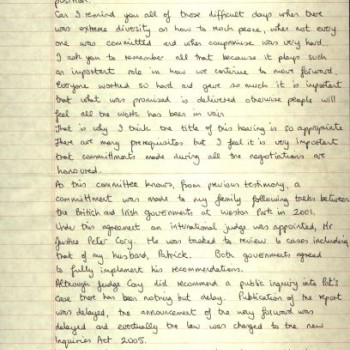 position.
Can I remind you all of those difficult days when there
was extreme diversity on how to reach peace, when not every
one was committed and when compromise was very hard.
I ask you to remember all that because it plays such
an important role in how we continue to move forward.
Everyone worked so hard and gave so much it is important
that what was promised is delivered otherwise people will
feel all the work has been in vain.
That is why I think the title of this hearing is so appropriate
There are many prerequisites but I feel it is very important
that commitments made during all the negotiations are
honoured.
As this committee knows, from previous testimony, a
committment was made to my family following talks between
the British and Irish governments at Weston Park in 2001.
Under this agreement an international judge was appointed, Mr
Justice Peter Cory. He was tasked to review 6 cases including
that of my husband, Patrick. Both governments agreed
to fully implement his recommendations.
Although Judge Cory did recommend a public inquiry into Pat's
case there has been nothing but delay. Publication of the report
was delayed, the announcement of the way forward was
delayed and eventually the law was changed to the new
Inquiries Act 2005.